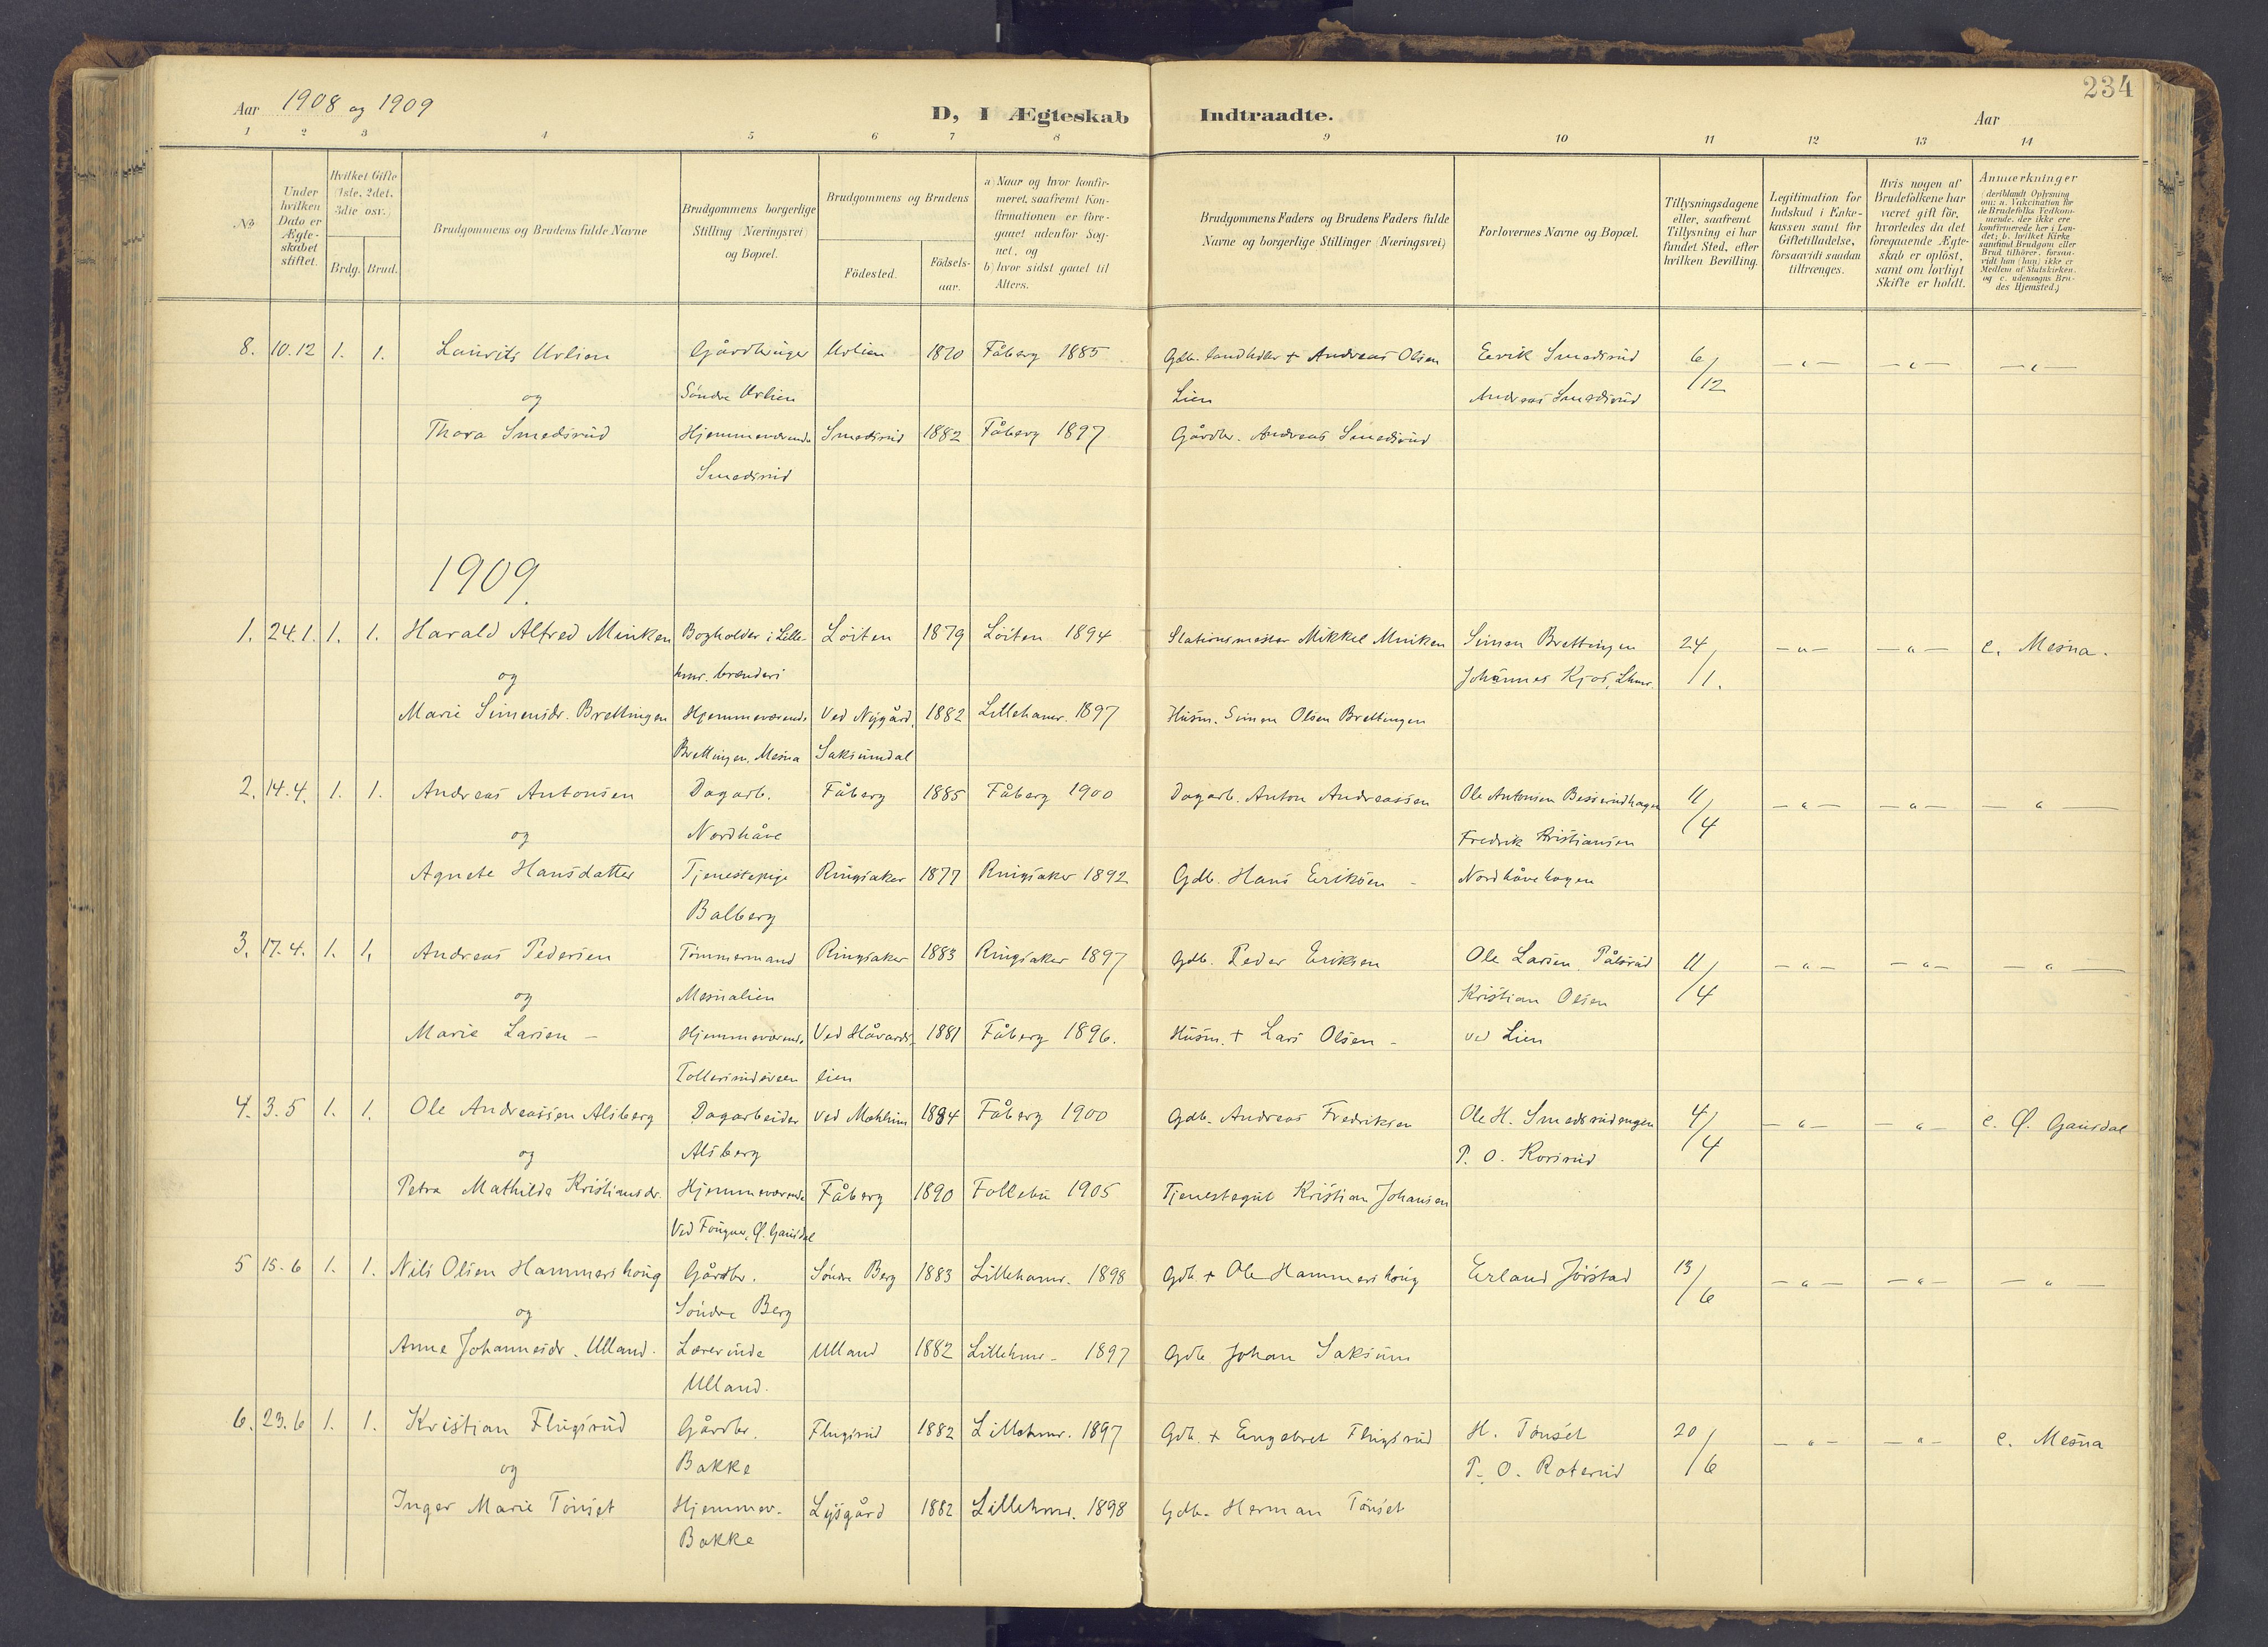 234
Aar 1908 og 1909 D, I Ægteskab Indtraadte. Aar
1 2 3 4 5 6 7 8 9 10 11 12 13 14
No
Under hvilken Dato er Ægteskabet stiftet.
Hvilket Gifte (1ste, 2det, 3die osv.)
Brdg. Brud.
Brudgommens og Brudens fulde Navne
Brudgommens borgerlige Stilling (Næringsvei) og Bopæl.
Brudgommens og Brudens
Födested.
Födselsaar.
a) Naar og hvor konfirmeret, saafremt Konfirmationen er foregaaet udenfor Sognet, og
b) hvor sidst gaaet til Alters.
Brudgommens Faders og Brudens Faders fulde Navne og borgerlige Stillinger (Næringsvei)
Forlovernes Navne og Bopæl.
Tillysningsdagene eller, saafremt Tillysning ei har fundet Sted, efter hvilken Bevilling.
Legitimation for Indskud i Enkekassen samt for Giftetilladelse, forsaavidt saadan tiltrænges.
Hvis nogen af Brudefolkene har været gift før, hvorledes da det foregaaende Ægteskab er oplöst, samt om lovligt Skifte er holdt.
Anmærkninger (deriblandt Oplysning om: a. Vakcination for de Brudefolks Vedkommende, der ikke ere konfirmerede her i Landet; b. hvilket Kirkesamfund Brudgom eller Brud tilhører, forsaavidt han (hun) ikke er Medlem af Statskirken, og c. udensogns Brudes Hjemsted.)
8. 10.12 1. 1. Laurits Urlien Gårdbruger Urlien 1870 Fåberg 1885 Gdb. landhdler + Andreas Olsen Eevik Smedsrud 6/12 — " — — " — — " —
og Söndre Urlien Lien Andreas Smedsrud
Thora Smedsrud Hjemmeværende Smedsrud 1882 Fåberg 1897 Gårdbr. Andreas Smedsrud
Smedsrud
1909.
1. 24.1. 1. 1. Harald Alfred Minken Bogholder i Lille- Löiten 1879 Löiten 1894 Stationsmester Mikkel Minken Simen Brettingen 24/1. — " — — " — c. Mesna.
og hmr. brænderi Johannes Kjos, Lhmr.
Marie Simensdr. Brettingen Hjemmeværende Ved Nygård, 1882 Lillehamr. 1897 Husm. Simen Olsen Brettingen
Brettingen, Mesna Saksumdal
2. 14.4. 1. 1. Andreas Antonsen Dagarb. Fåberg 1885 Fåberg 1900 Dagarb. Anton Andreassen Ole Antonsen Besserudhagen 11/4 — " — — " — — " —
og Nordhåve Fredrik Kristiansen
Agnete Hansdatter Tjenestepige Ringsaker 1877 Ringsaker 1892 Gdb. Hans Eriksen - Nordhåvehagen
Balberg
3. 17.4. 1. 1. Andreas Pedersen Tömmermand Ringsaker 1883 Ringsaker 1897 Gdb. Peder Eriksen Ole Larsen Pålsrud 11/4 — " — — " — — " —
og Mesnalien Kristian Olsen
Marie Larsen - Hjemmeværende Ved Håvards- 1881 Fåberg 1896. Husm. + Lars Olsen - ved Lien
Tollersrudsveen lien
4. 3.5 1. 1. Ole Andreassen Alsberg Dagarbeider ved Mohlum 1884 Fåberg 1900 Gdb. Andreas Fredriksen Ole H. Smedsrudengen 4/4 — " — — " — c. Ø. Gausdal
og Alsberg P. O. Korsrud
Petra Mathilde Kristiansdr. Hjemmeværende Fåberg 1890 Follebu 1905 Tjenestegut Kristian Johansen
Ved Fougner, Ø. Gausdal
5 15.6 1. 1. Nils Olsen Hammershoug Gårdbr. Söndre Berg 1883 Lillehamr. 1898 Gdb. + Ole Hammershoug Erland Jörstad 13/6 — " — — " — — " —
og Söndre Berg
Anne Johannesdr. Ulland. Lærerinde Ulland 1882 Lillehmr. 1897 Gdb. Johan Saksum
Ulland.
6. 23.6 1. 1. Kristian Flugsrud Gårdbr. Flugsrud 1882 Lillehmr. 1897 Gdb. + Engebret Flugsrud H. Tönset 20/6 — " — — " — c. Mesna
og Bakke P. O. Roterud
Inger Marie Tönset Hjemmev. Lysgård 1882 Lillehmr. 1898 Gdb. Herman Tönset
Bakke